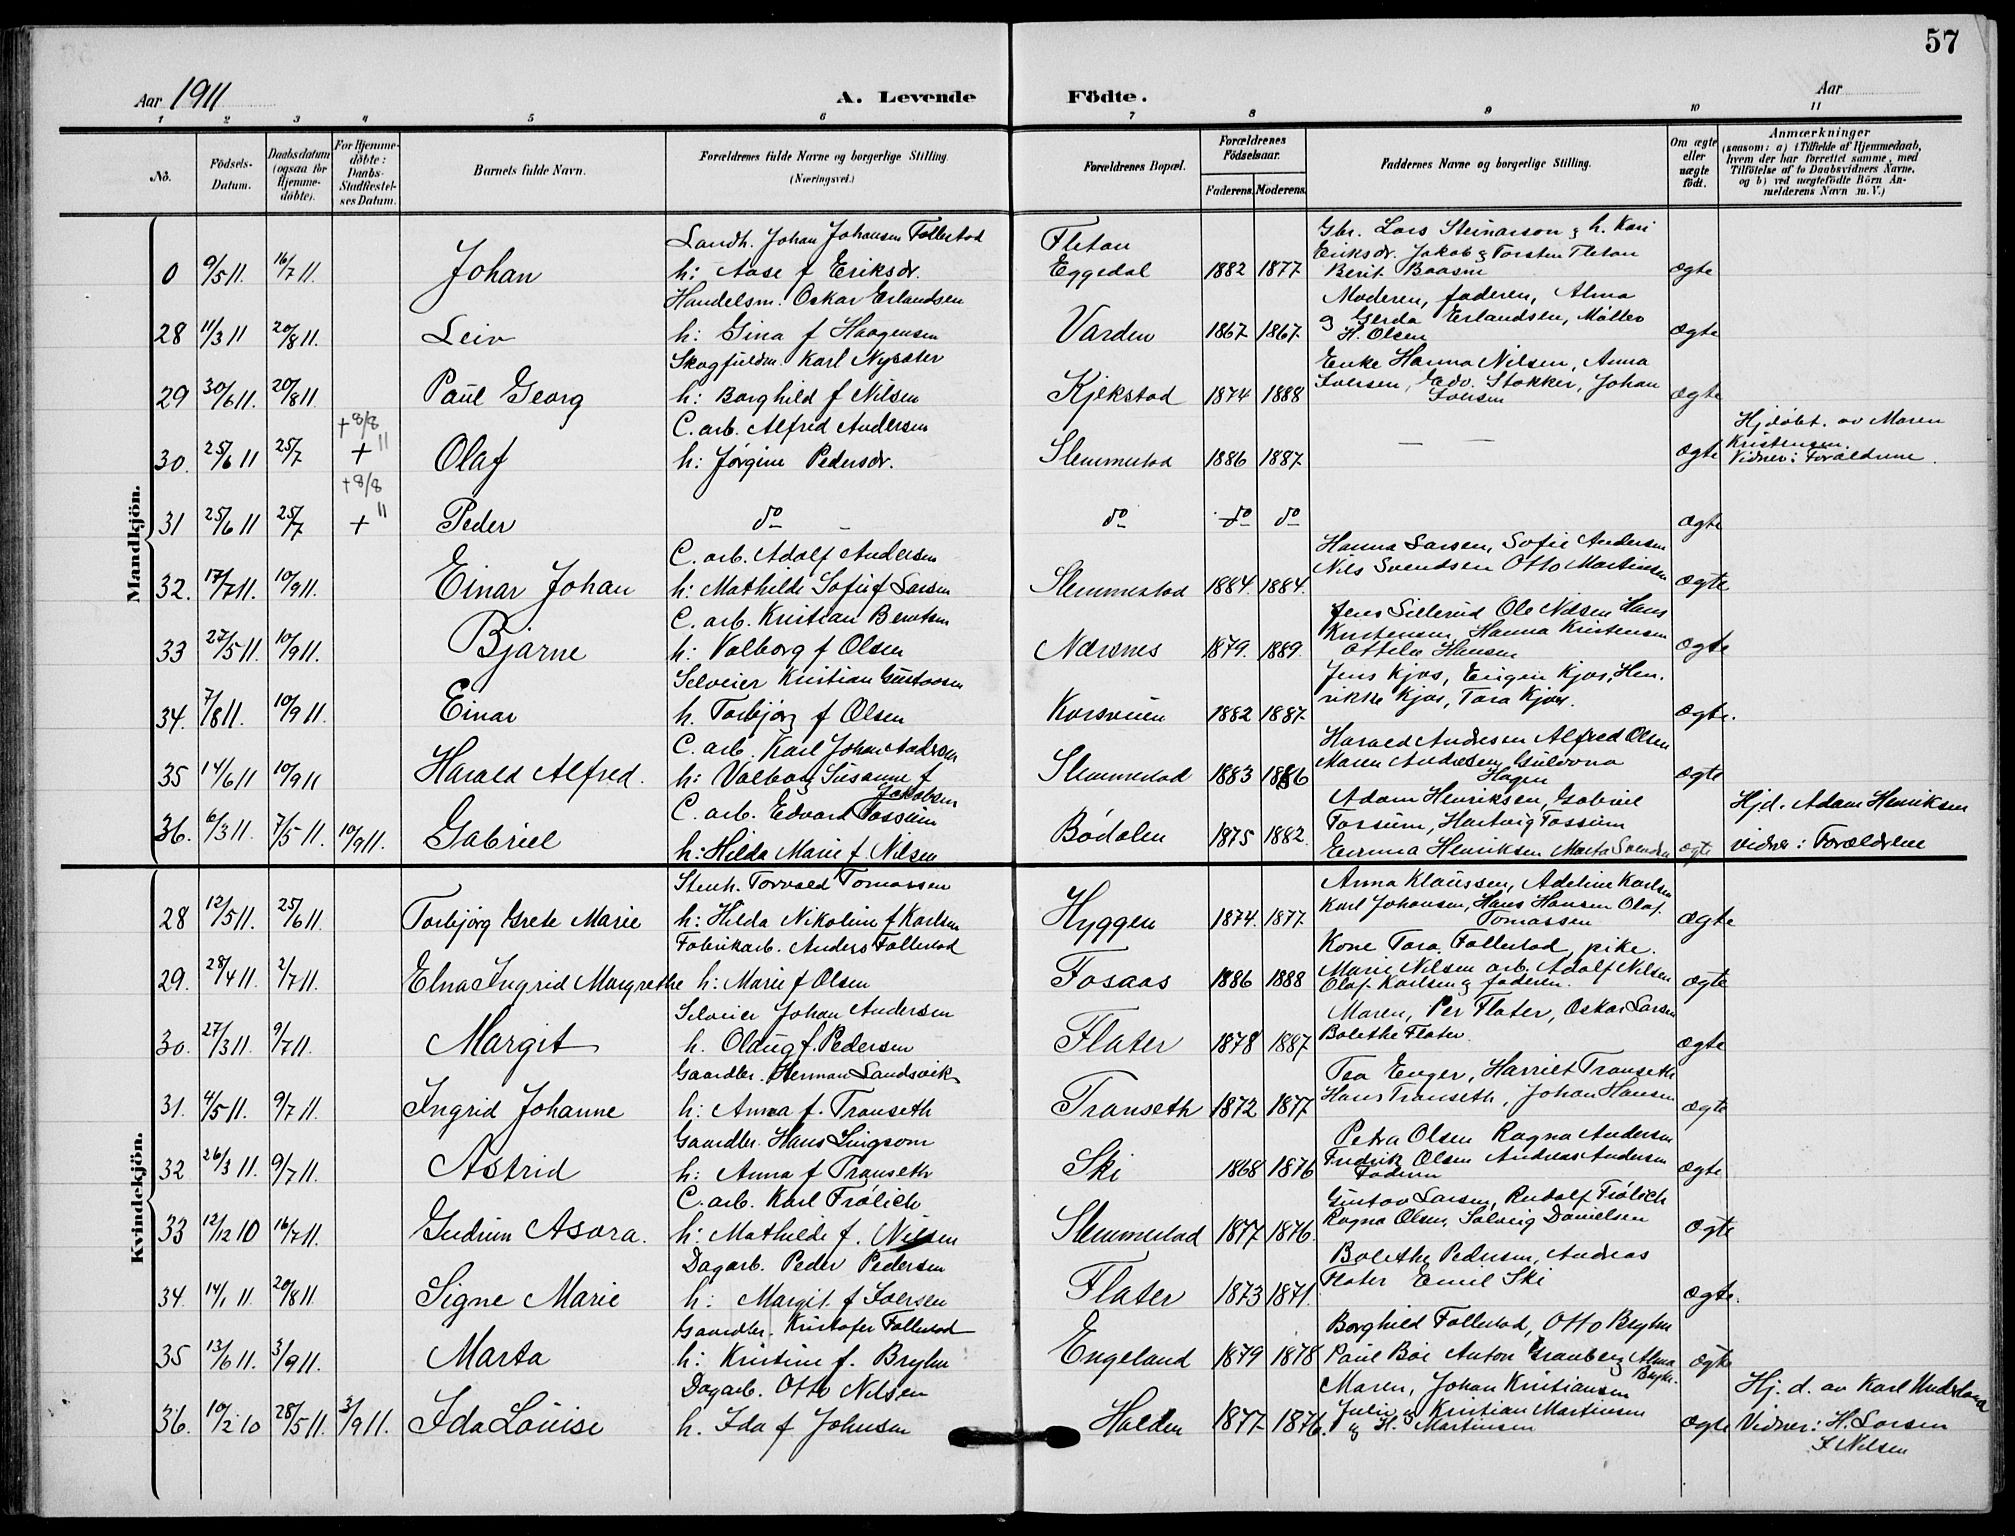 57
Aar 1911
A. Levende Födte.
Aar
1 2 3 4 5 6 7 8 9 10 11
No.
Födsels-Datum.
Daabsdatum (ogsaa for Hjemme-döbte).
For Hjemme-döbte: Daabs-Stadfæstel-ses Datum.
Barnets fulde Navn.
Forældrenes fulde Navne og borgerlige Stilling. (Næringsvei.)
Forældrenes Bopæl.
Forældrenes Födselsaar.
Faderens. Moderens.
Faddernes Navne og borgerlige Stilling.
Om ægte eller uægte födt.
Anmærkninger (saasom: a) i Tilfælde af Hjemmedaab, hvem der har forrettet samme, med Tilföielse af to Daabsvidners Navne, og b) ved uægtefödte Börn An-melderens Navn m. V.)
Mandkjön.
Landh. Johan Johansen Follestad Gbr. Lars Steinarson & h. Kari
0 9/5 11. 16/7 11. Johan h: Aase f Eriksdr. Fletan Eggedal 1882 1877 Eriksdr. Jakob & Torsten Fletan Berit Baasm ægte
Handelsm. Oskar Erlandsen Moderen, faderen, Alma
28 11/3 11 20/8 11. Leiv h: Gina f Haagensen Varden 1867 1867 & Gerda Erlandsen, Møller H. Olsen ægte
Skogfuldm. Karl Nysæter Enke Hanna Nilsen, Anna
29 30/6 11. 20/8 11 Paul Georg h: Borghild f Nilsen Kjekstad 1874 1888 Iversen, Edv. Stokker, Johan Iversen ægte
+8/8 11 C. arb. Alfred Andersen Hjdöbt. av Maren
30. 25/6 11 25/7 + Olaf h: Jørgine Pedersdr. Slemmestad 1886 1887 — — ægte Kristensen. Vidner: Forældrene.
+8/8 11
31 25/6 11 25/7 + Peder do – do do do ægte
C. arb. Adolf Andersen Hanna Larsen, Sofie Andersen
32. 17/7 11. 10/9 11. Einar Johan h: Mathilde Sofie f Larsen Slemmestad 1884. 1884. Nils Svendsen Otto Martinsen ægte
C. arb. Kristian Berntsen Jens Sillerud Ole Nilsen Hans
33 27/5 11. 10/9 11. Bjarne h: Valborg f Olsen Nærsnes 1879. 1889. Kristensen, Hanna Kristensen Ottilie Hansen ægte
Selveier Kristian Gustavsen Jens Kjos, Eugen Kjos, Hen.
34. 7/8 11. 10/9 11. Einar h. Torbjørg f Olsen Korsveien 1882 1887 rikke Kjos, Tara Kjos. ægte.
C. arb. Karl Johan Andersen Harald Andresen Alfred Olsen
35 14/6 11 10/9 11 Harald Alfred. h: Valborg Susanne f Jakobsen Slemmestad 1883 1886 Maren Andresen Gulovna Hagen ægte
C. arb. Edvard Fossum Adam Henriksen, Gabriel Hjd. Adam Henriksen
36. 6/3 11. 7/5 11. 10/9 11. Gabriel h: Hilda Marie f. Nilsen Bödalen 1875 1882. Fossum, Hartvig Fossum Emma Henriksen Marta Svendsen ægte vidner: Forældrene
Kvindekjön.
Stenh. Torvald Tomassen Anna Klaussen, Adeline Karlsen
28 12/5 11. 25/6 11. Torbjörg Grete Marie h: Hilda Nikoline f Karlsen Hyggen 1874. 1877. Karl Johansen, Hans Hansen Olaf. Tomassen ægte
Fabrikarb. Anders Follestad Kone Tara Follestad, pike.
29. 28/4 11. 2/7 11. Elna Ingrid Margrethe h: Marie f Olsen Fosaas 1886 1888 Marie Nilsen arb. Adolf Nilsen Olaf Karlsen & faderen. ægte
Selveier Johan Andersen Maren, Per Flater, Oskar Larsen
30. 27/3 11. 9/7 11. Margit h. Olaug f. Pedersen Flater 1878 1887 Bolethe Flater. ægte
Gaardbr. Herman Sandsvik Tea Enger, Harriet Transeth
31. 4/5 11. 9/7 11. Ingrid Johanne h: Anna f. Transeth Transeth 1872 1877 Hans Transeth, Johan Hansen ægte
Gaardbr. Hans Lingsom Petra Olsen Ragna Andersen
32 26/3 11. 9/7 11. Astrid h: Anna f Transeth Ski 1868 1876 Fredrik Olsen Andreas Andersen Faderen ægte
C. arb. Karl Frölich Gustav Larsen, Rudolf Frölich
33 12/12 10 16/7 11. Gudrun Asora. h: Mathilde f. Nilsen Slemmestad 1877 1876. Ragna Olsen, Solveig Danielsen ægte
Dagarb. Peder Pedersen Bolethe Pedersen, Andreas
34. 14/1 11. 20/8 11 Signe Marie h: Margit. f Iversen Flater 1873 1871. Flater Emil Ski ægte.
Gaardbr. Kristofer Follestad Borghild Follestad, Otto Bryhn
35 13/6 11. 3/9 11. Marta h: Kristine f. Bryhn Engeland 1879 1878 Paul Böe Anton Granberg Alma Bryhn. ægte
Dagarb. Otto Nilsen Maren, Johan Kristiansen Hj. d. av Karl
36. 10/2 10 28/5 11. 3/9 11. Ida Louise h. Ida f Johnsen Halden 1877 1876. Julie & Kristian Martinsen & H. Martinsen ægte Vidner: H. Larsen
I Nilsen